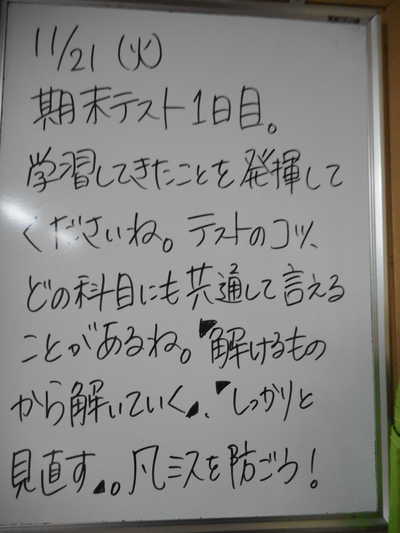 11/21 (火)
期末テスト1日目。
学習してきたことを発揮して
くださいね。テストのコツ、
どの科目にも共通して言える
ことがあるね。"解けるもの
から解いていく"、"しっかりと
見直す"。凡ミスを防ごう!